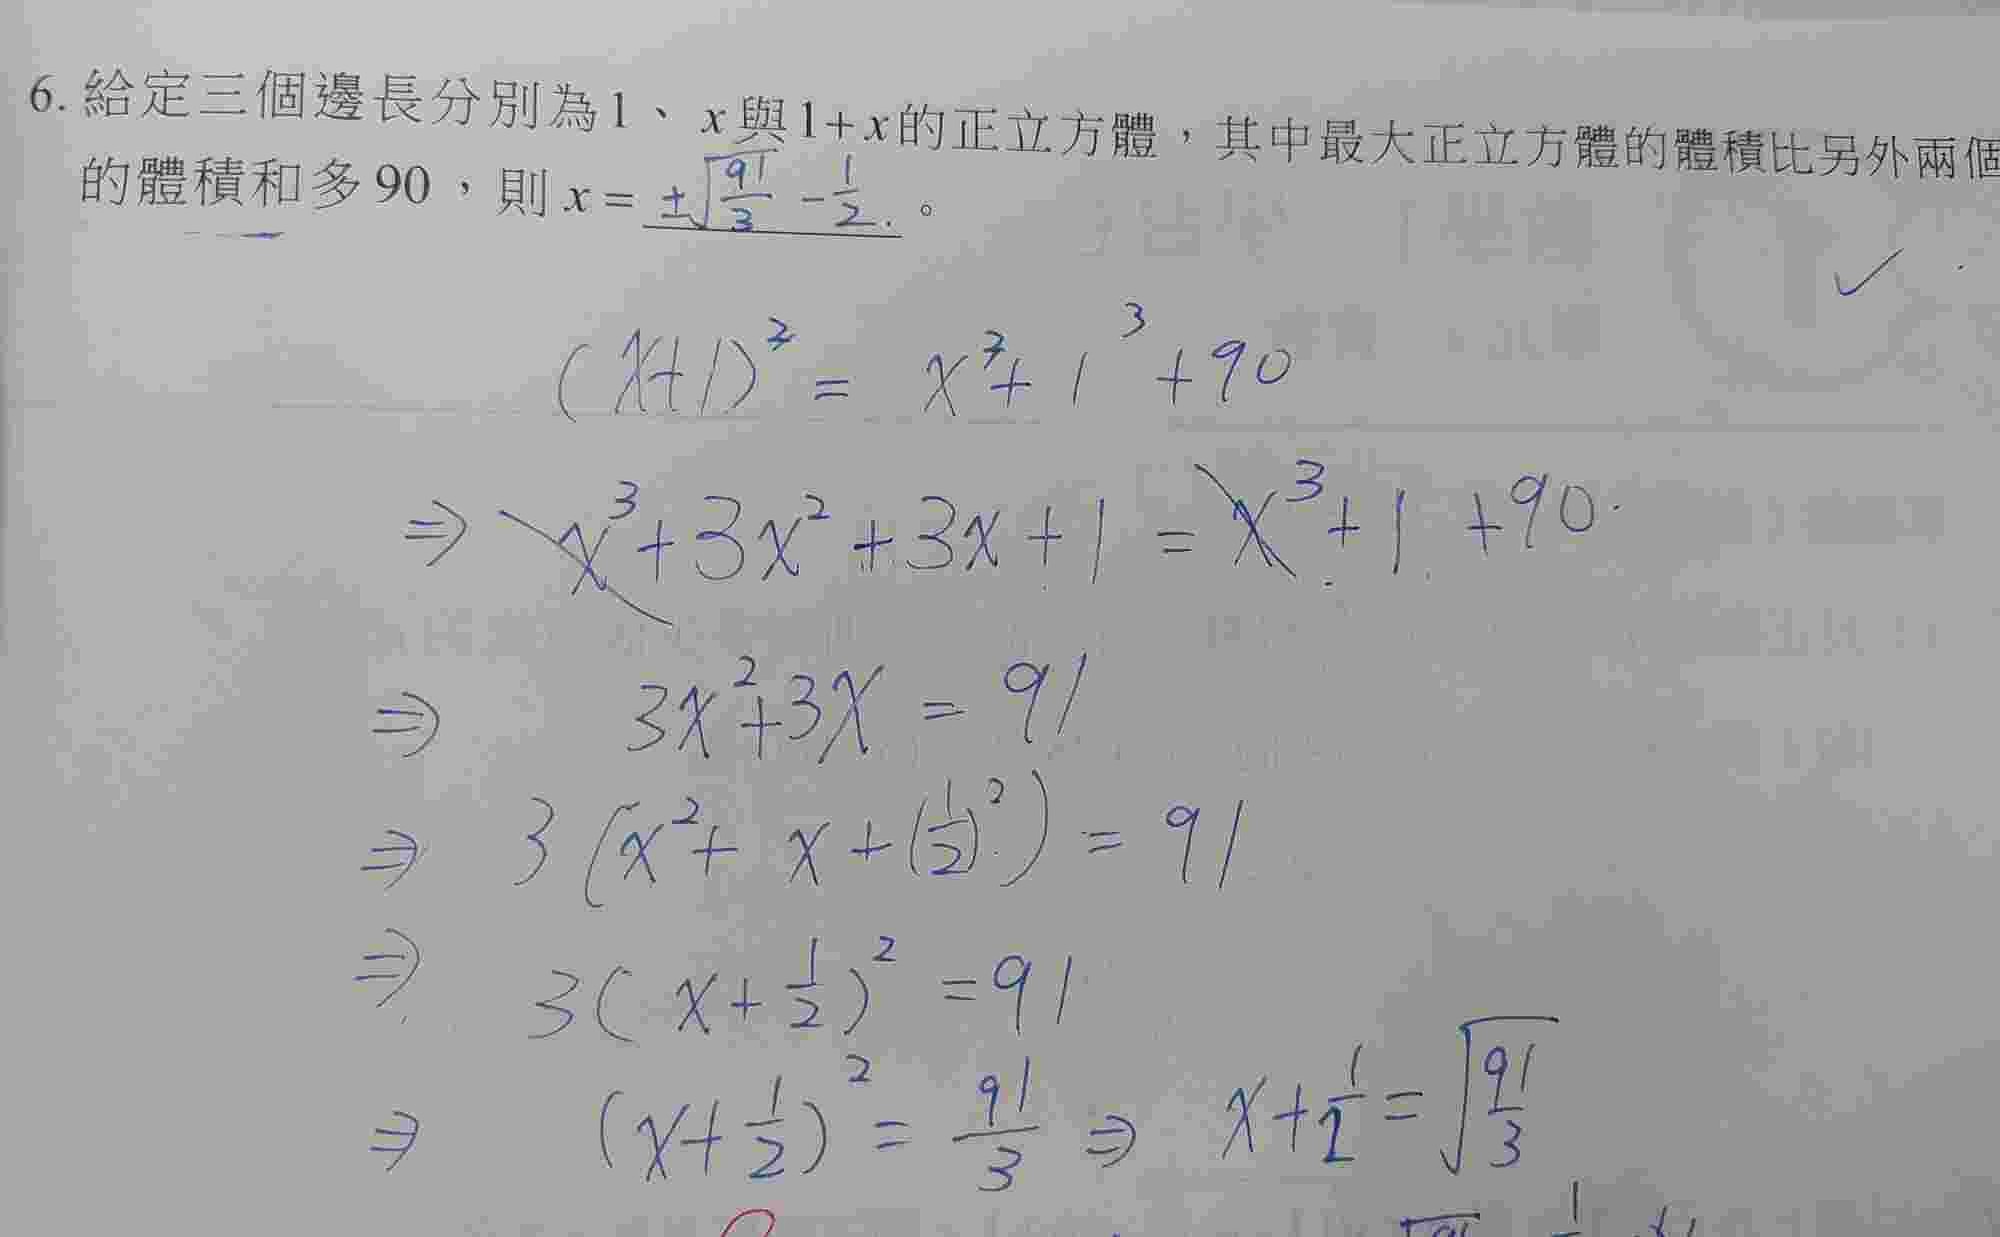 6. 給定三個邊長分別為1、x與1+x的正立方體，其中最大正立方體的體積比另外兩個
的體積和多90，則x= ±√(91/3) - 1/2 . 。
(x+1)³ = x³ + 1³ + 90
⇒ x³ + 3x² + 3x + 1 = x³ + 1 + 90.
⇒ 3x² + 3x = 91
⇒ 3(x² + x + (1/2)²) = 91
⇒ 3(x + 1/2)² = 91
⇒ (x + 1/2)² = 91/3 ⇒ x + 1/2 = √(91/3)